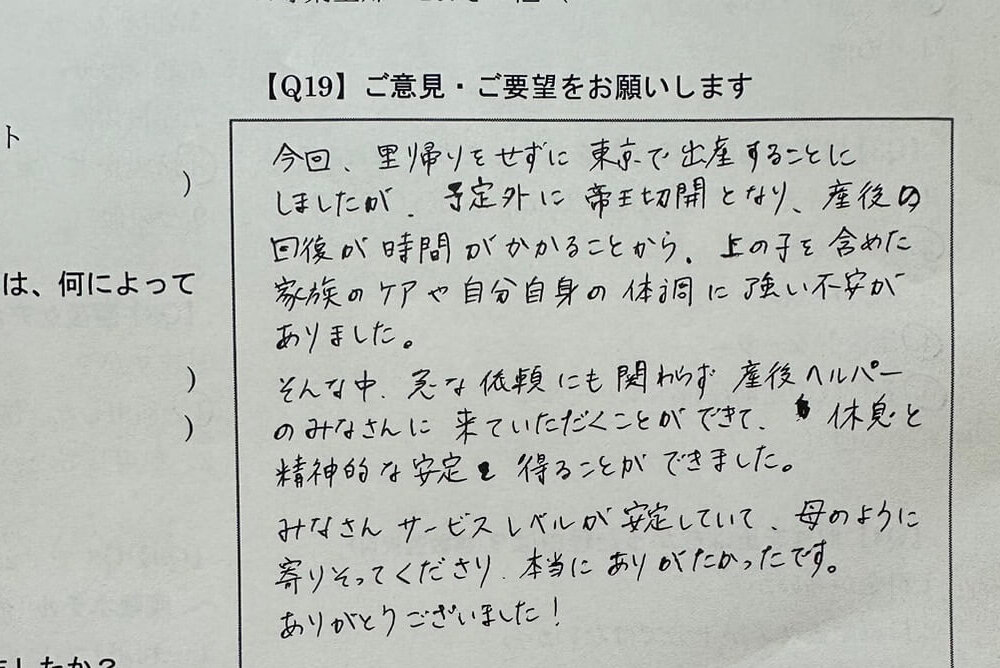 【Q19】ご意見・ご要望をお願いします
ト
)
は、何によって
)
)
今回、里帰りをせずに東京で出産することに
しましたが、予定外に帝王切開となり、産後の
回復が時間がかかることから、上の子を含めた
家族のケアや自分自身の体調に強い不安が
ありました。
そんな中、急な依頼にも関わらず産後ヘルパー
のみなさんに来ていただくことができて、休息と
精神的な安定を得ることができました。
みなさんサービスレベルが安定していて、母のように
寄りそってくださり、本当にありがたかったです。
ありがとうございました!
ましたか?